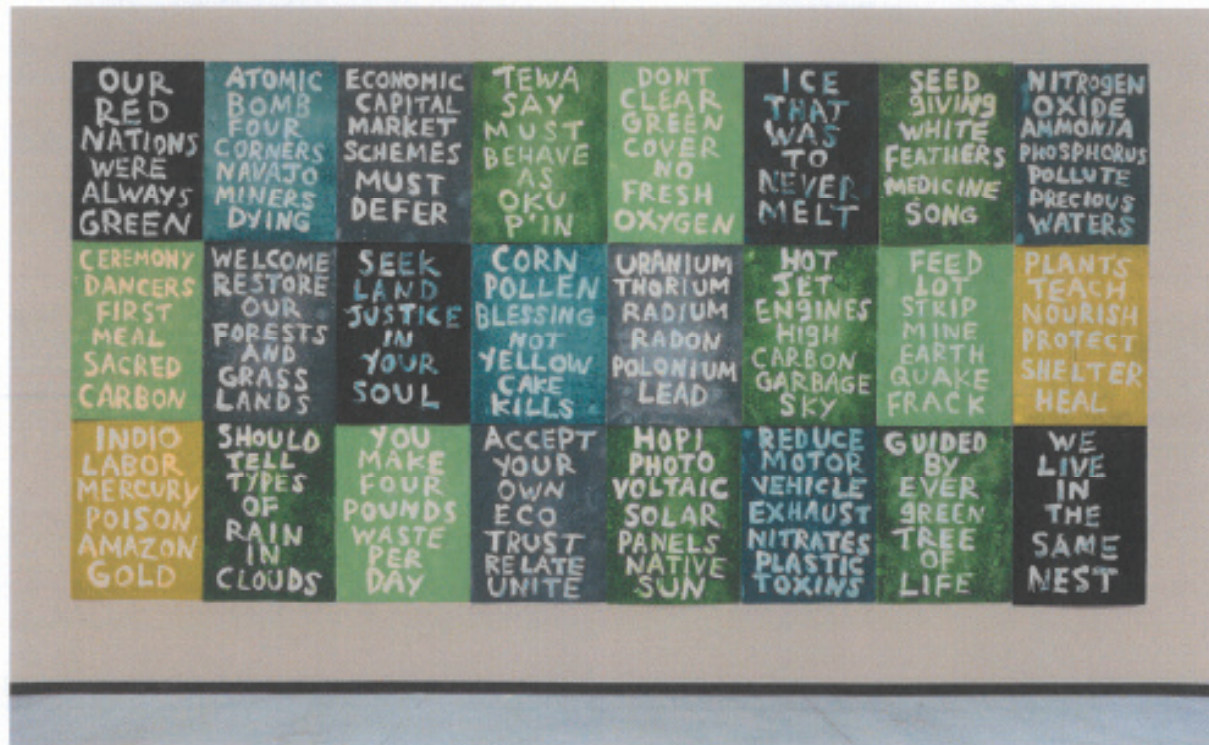 OUR
RED
NATIONS
WERE
ALWAYS
GREEN
ATOMIC
BOMB
FOUR
CORNERS
NAVAJO
MINERS
DYING
ECONOMIC
CAPITAL
MARKET
SCHEMES
MUST
DEFER
TEWA
SAY
MUST
BEHAVE
AS
OKU
P'IN
DONT
CLEAR
GREEN
COVER
NO
FRESH
OXYGEN
ICE
THAT
WAS
TO
NEVER
MELT
SEED
GIVING
WHITE
FEATHERS
MEDICINE
SONG
NITROGEN
OXIDE
AMMONIA
PHOSPHORUS
POLLUTE
PRECIOUS
WATERS
CEREMONY
DANCERS
FIRST
MEAL
SACRED
CARBON
WELCOME
RESTORE
OUR
FORESTS
AND
GRASS
LANDS
SEEK
LAND
JUSTICE
IN
YOUR
SOUL
CORN
POLLEN
BLESSING
NOT
YELLOW
CAKE
KILLS
URANIUM
THORIUM
RADIUM
RADON
POLONIUM
LEAD
HOT
JET
ENGINES
HIGH
CARBON
GARBAGE
SKY
FEED
LOT
STRIP
MINE
EARTH
QUAKE
FRACK
PLANTS
TEACH
NOURISH
PROTECT
SHELTER
HEAL
INDIO
LABOR
MERCURY
POISON
AMAZON
GOLD
SHOULD
TELL
TYPES
OF
RAIN
IN
CLOUDS
YOU
MAKE
FOUR
POUNDS
WASTE
PER
DAY
ACCEPT
YOUR
OWN
ECO
TRUST
RELATE
UNITE
HOPI
PHOTO
VOLTAIC
SOLAR
PANELS
NATIVE
SUN
REDUCE
MOTOR
VEHICLE
EXHAUST
NITRATES
PLASTIC
TOXINS
GUIDED
BY
EVER
GREEN
TREE
OF
LIFE
WE
LIVE
IN
THE
SAME
NEST